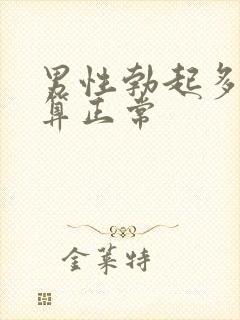 男性勃起多
算正常
金莱特